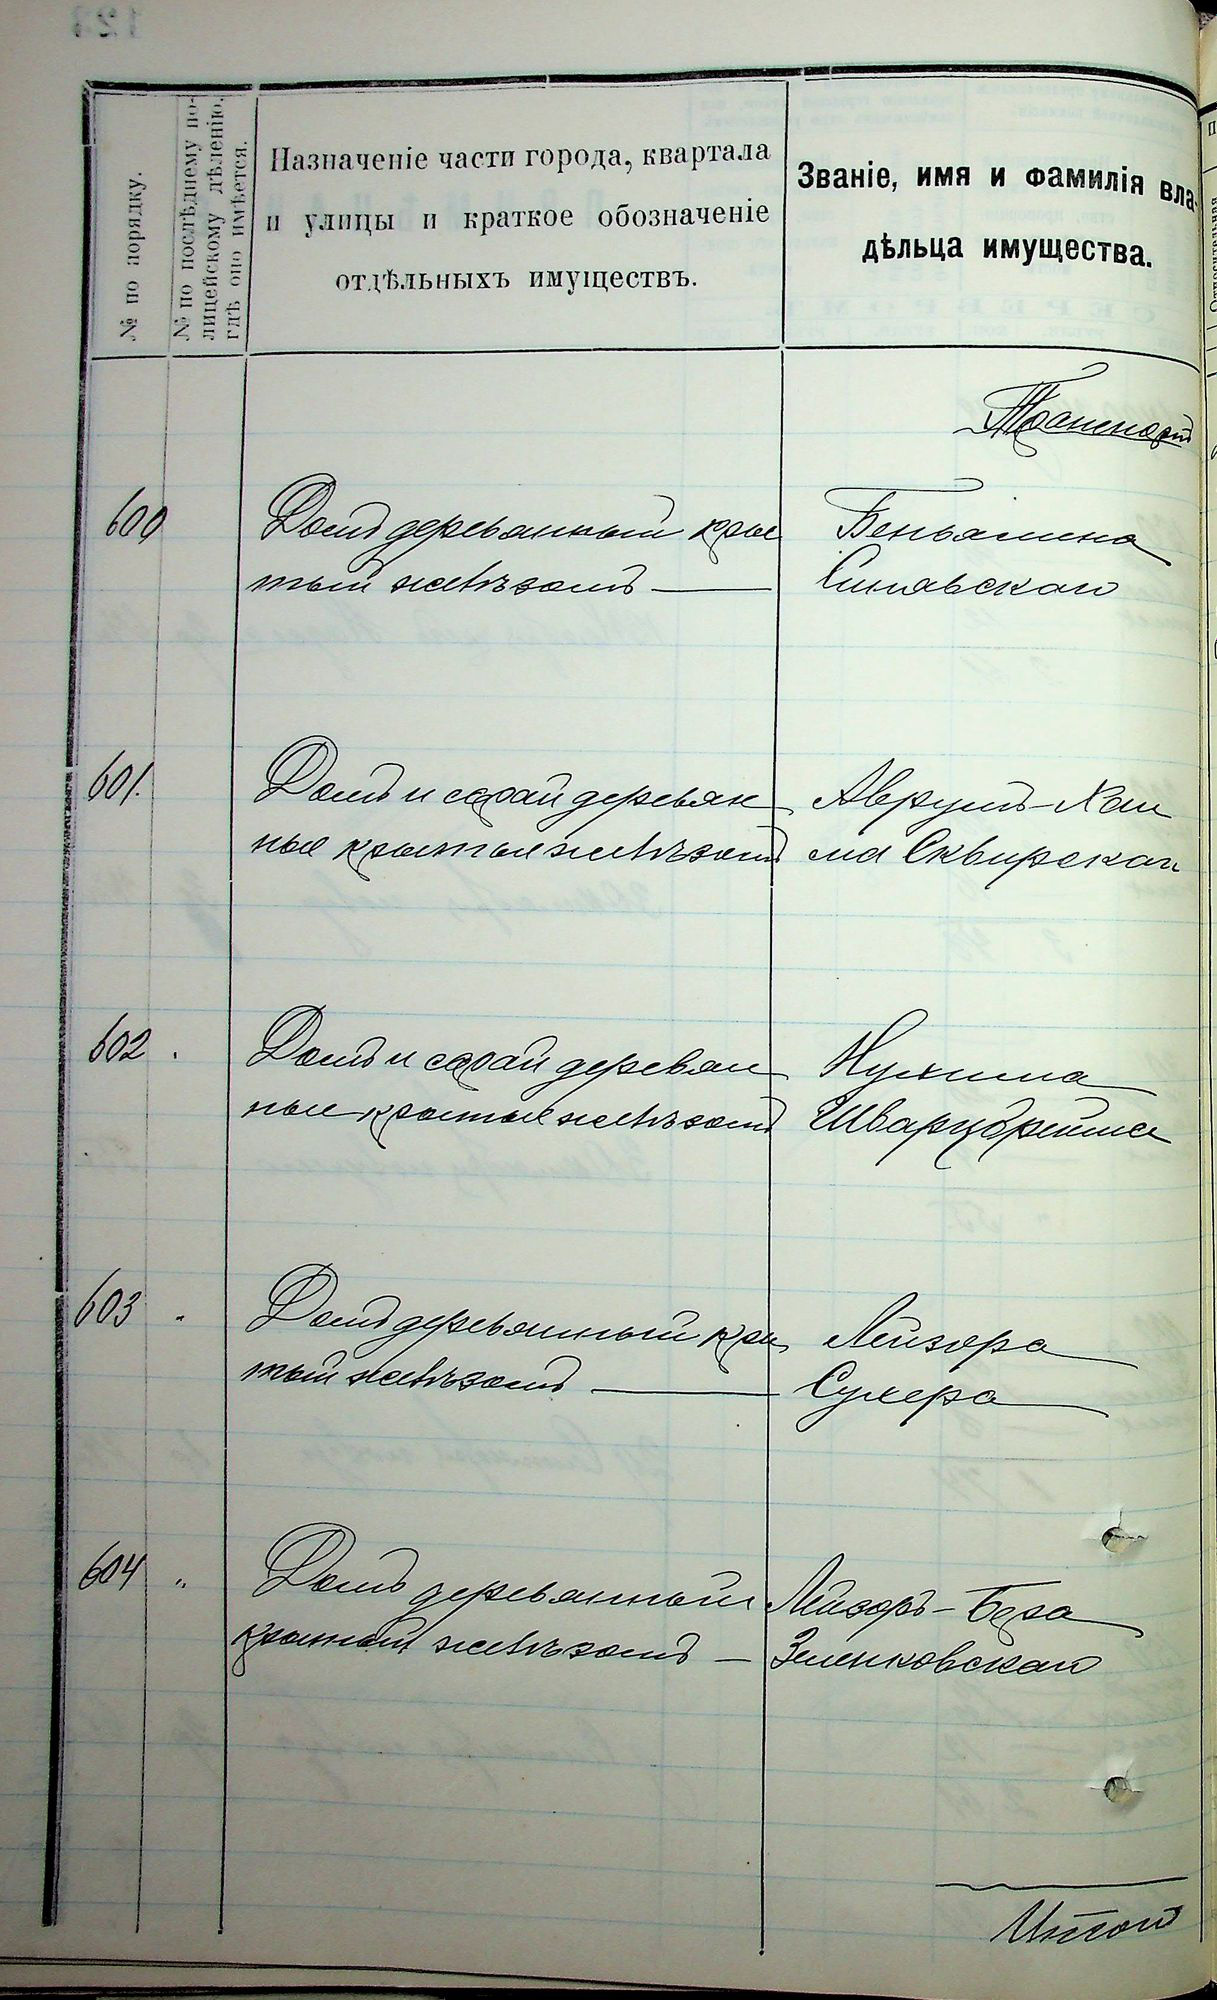 № по порядку.
№ по послѣднему по-
лицейскому дѣленію,
гдѣ оно имѣется.
Назначеніе части города, квартала
и улицы и краткое обозначеніе
отдѣльныхъ имуществъ.
Званіе, имя и фамилія вла-
дѣльца имущества.
Транспортъ
600
Домъ деревянный кры
тый желѣзомъ —
Беньямина
Синявскаго
601.
Домъ и сарай деревян
ные крытые желѣзомъ
Аврумъ-Хаи
ма Сквирскаго
602
Домъ и сарай деревян
ные крытые желѣзомъ
Нухима
Шварцбрейма
603 "
Домъ деревянный кры
тый желѣзомъ —
Лейзора
Сухера
604 "
Домъ деревянный
крытый желѣзомъ —
Лейзоръ-Бера
Зеленковскаго
Итого